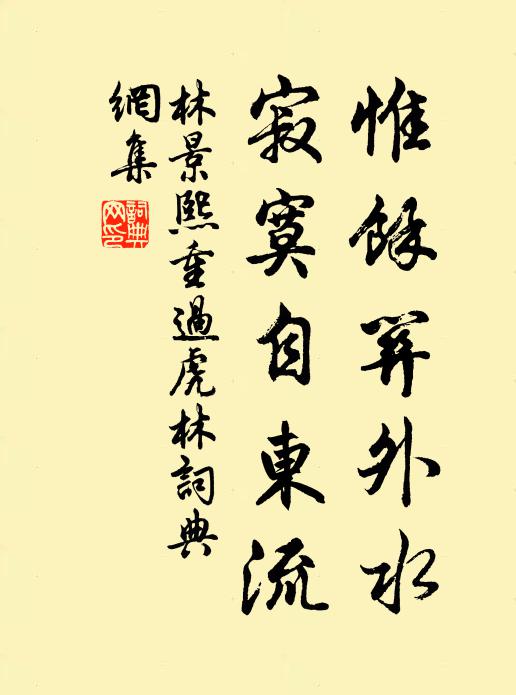 惟餘關外水
寂寞自東流
林景熙重過虎林詞典
網集
詞典
网印